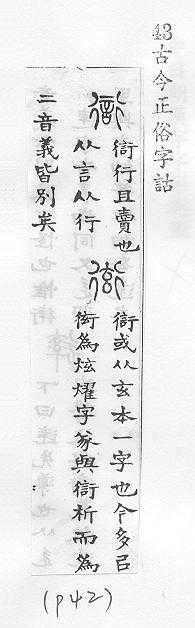 43古今正俗字詁
𧗳行且賣也
从言从行
𧗳或从玄本一字也今多㠯
衒為炫燿字㒸與𧗳析而為
二音義皆別矣
(p42)